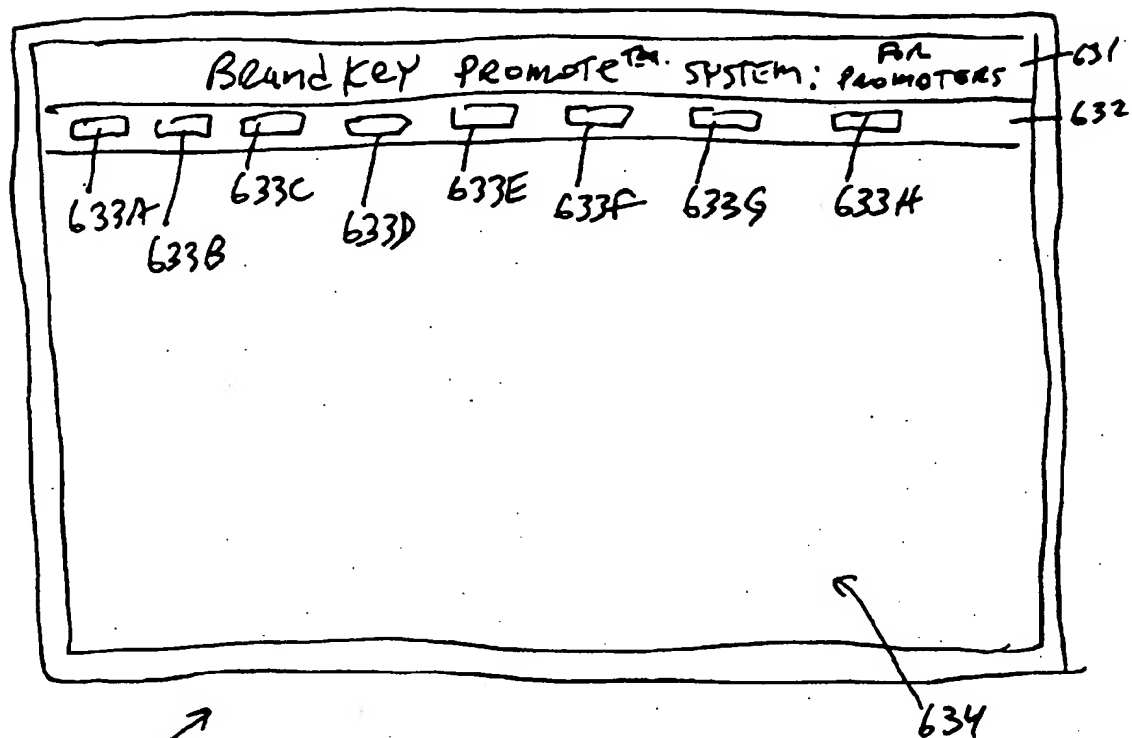 BrandKey PromoTe™ SYSTEM: FOR PROMOTERS
631
632
633A 633B 633C 633D 633E 633F 633G 633H
634